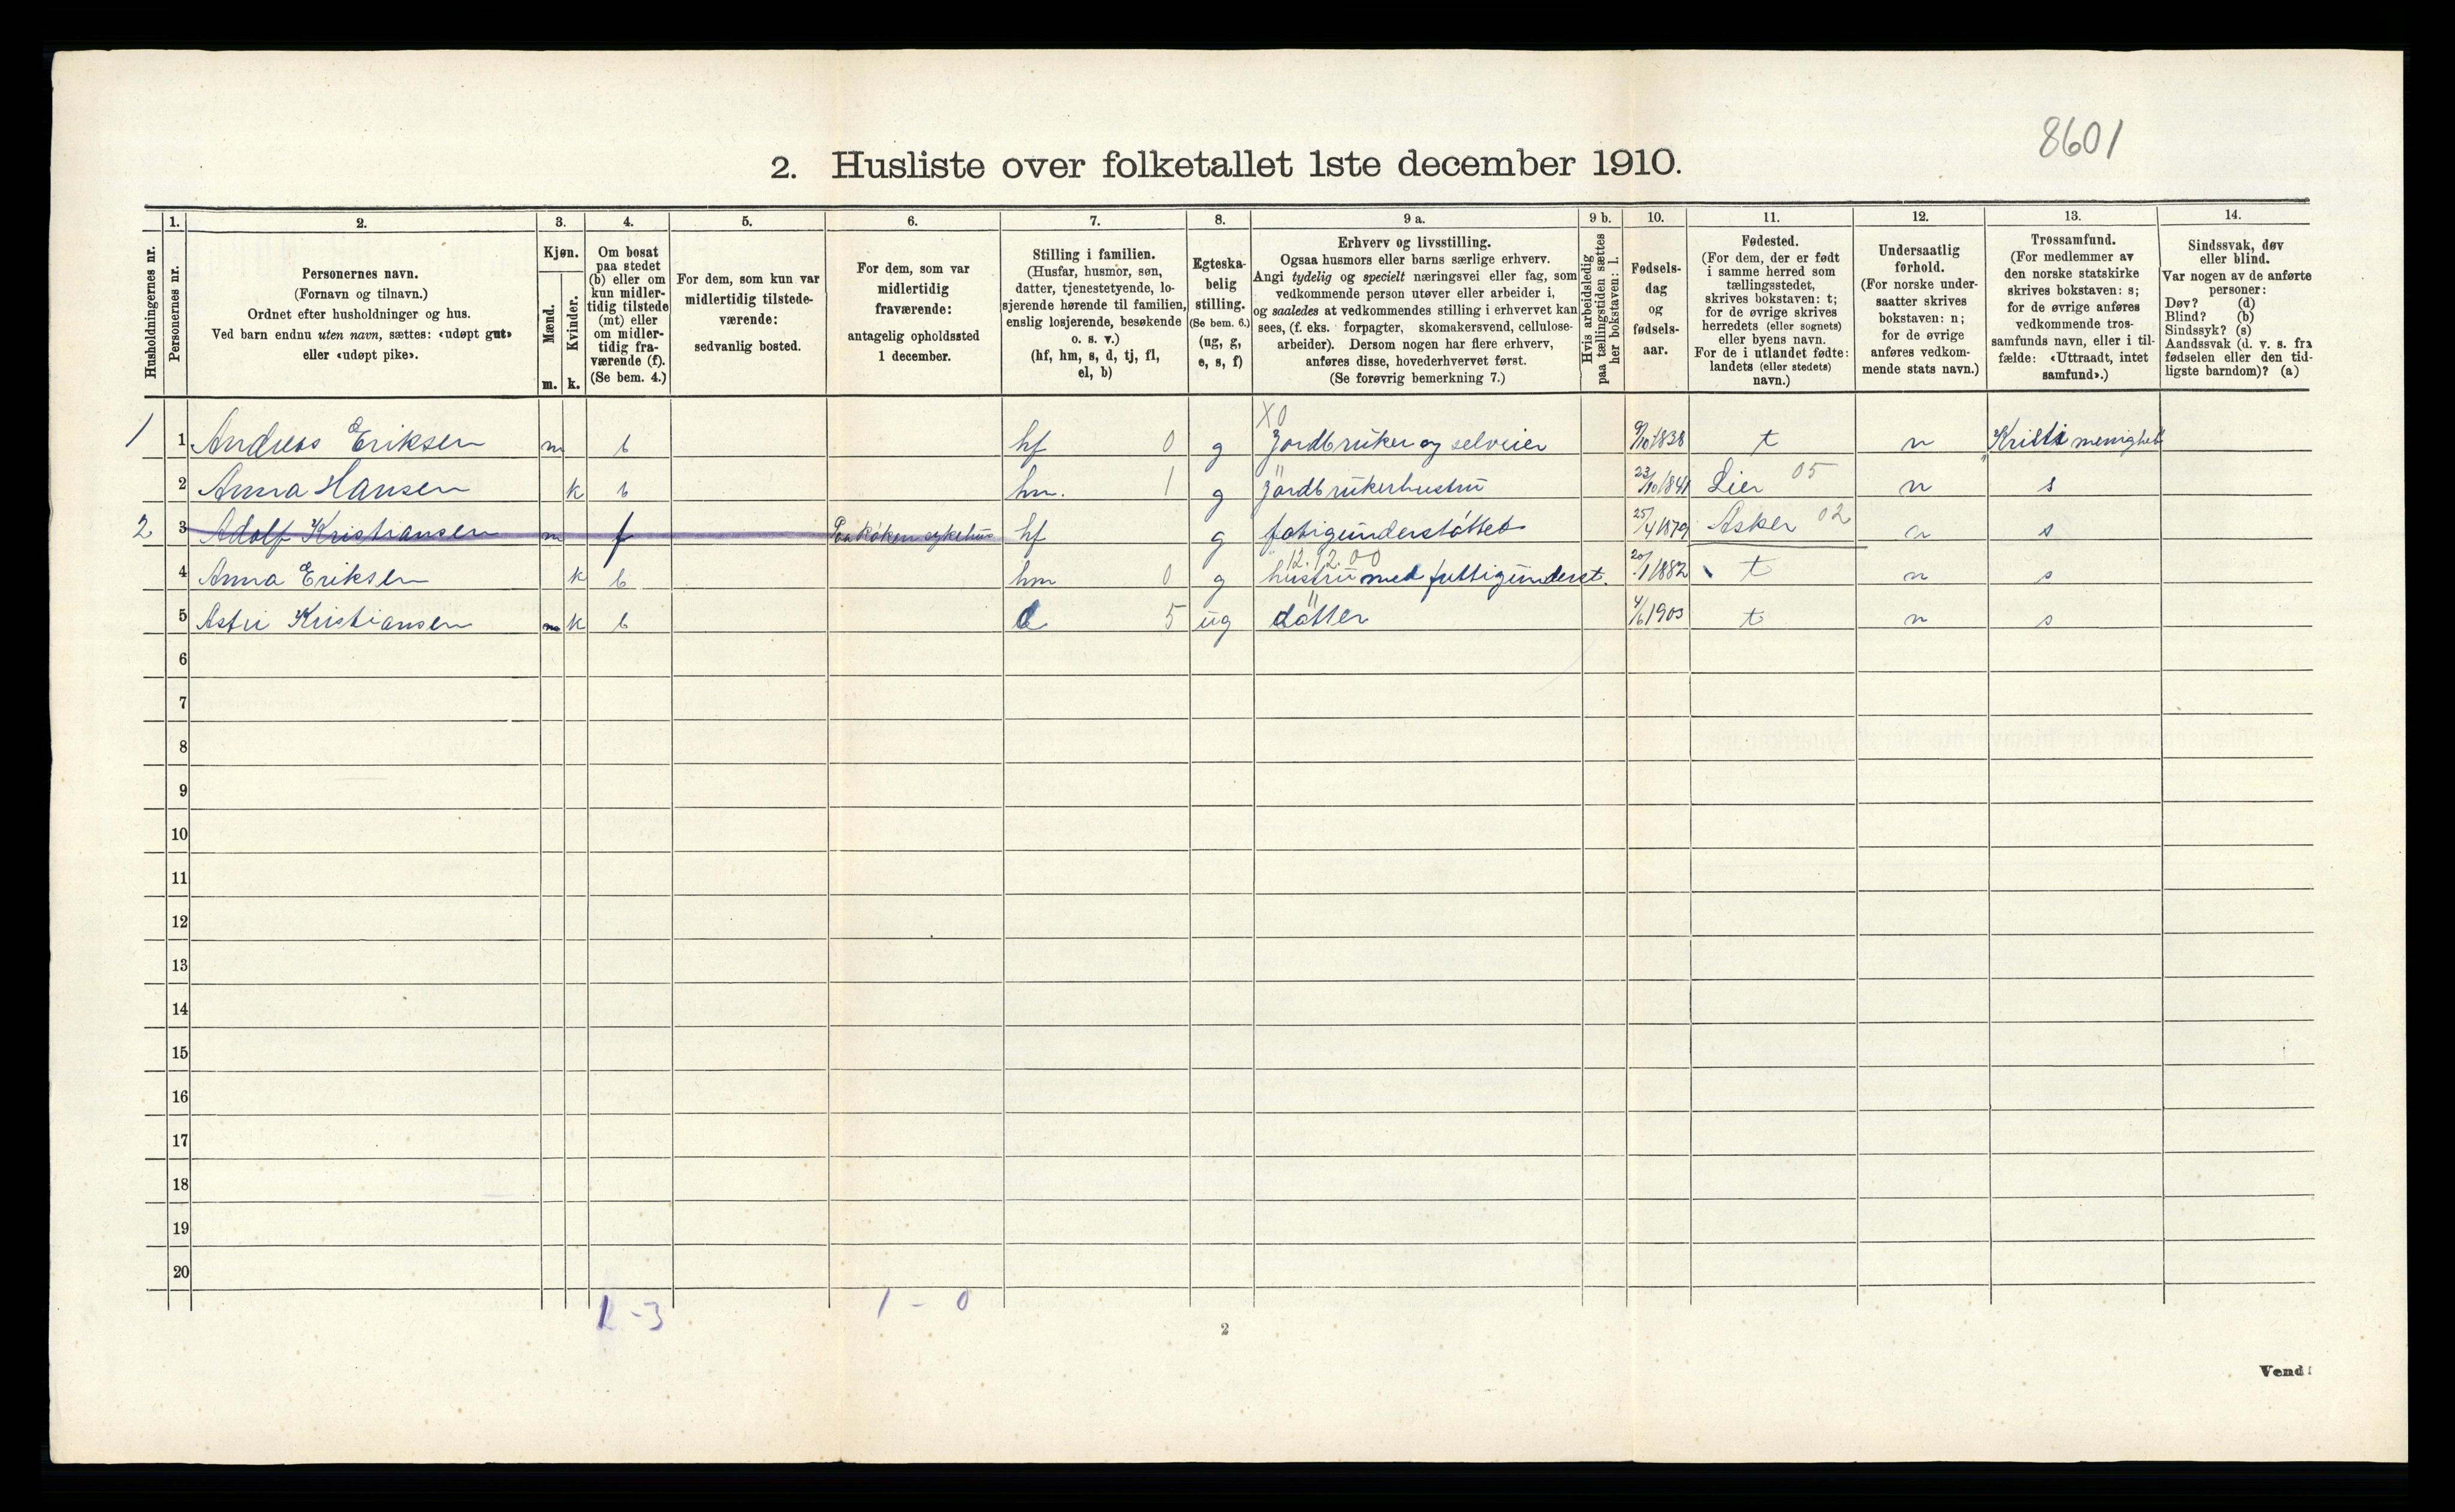 8601
2. Husliste over folketallet 1ste december 1910.
Husholdningernes nr.
1. Personernes nr.
2. Personernes navn. (Fornavn og tilnavn.) Ordnet efter husholdninger og hus. Ved barn endnu uten navn, sættes: «udøpt gut» eller «udøpt pike».
3. Kjøn. Mænd. m. Kvinder. k.
4. Om bosat paa stedet (b) eller om kun midlertidig tilstede (mt) eller om midlertidig fraværende (f). (Se bem. 4.)
5. For dem, som kun var midlertidig tilstedeværende: sedvanlig bosted.
6. For dem, som var midlertidig fraværende: antagelig opholdssted 1 december.
7. Stilling i familien. (Husfar, husmor, søn, datter, tjenestetyende, losjerende hørende til familien, enslig losjerende, besøkende o. s. v.) (hf, hm, s, d, tj, fl, el, b)
8. Egteskabelig stilling. (Se bem. 6.) (ug, g, e, s, f)
9 a. Erhverv og livsstilling. Ogsaa husmors eller barns særlige erhverv. Angi tydelig og specielt næringsvei eller fag, som vedkommende person utøver eller arbeider i, og saaledes at vedkommendes stilling i erhvervet kan sees, (f. eks. forpagter, skomakersvend, cellulosearbeider). Dersom nogen har flere erhverv, anføres disse, hovederhvervet først. (Se forøvrig bemerkning 7.)
9 b. Hvis arbeidsledig paa tællingstiden sættes her bokstaven: l.
10. Fødselsdag og fødselsaar.
11. Fødested. (For dem, der er født i samme herred som tællingsstedet, skrives bokstaven: t; for de øvrige skrives herredets (eller sognets) eller byens navn. For de i utlandet fødte: landets (eller stedets) navn.)
12. Undersaatlig forhold. (For norske undersaatter skrives bokstaven: n; for de øvrige anføres vedkommende stats navn.)
13. Trossamfund. (For medlemmer av den norske statskirke skrives bokstaven: s; for de øvrige anføres vedkommende trossamfunds navn, eller i tilfælde: «Uttraadt, intet samfund».)
14. Sindssvak, døv eller blind. Var nogen av de anførte personer: Døv? (d) Blind? (b) Sindssyk? (s) Aandssvak (d. v. s. fra fødselen eller den tidligste barndom)? (a)
X0
1 1 Andreas Eriksen m b hf 0 g Jordbruker og selveier 9/10 1838 t n Kristi menighet
2 Anna Hansen k b hm. 1 g " jordbrukerhustru 23/10 1841 Lier 05 n s
2 3 Adolf Kristiansen m f Paa Röken sykehus hf g fatigunderstöttet 25/4 1879 Asker 02 n s
12.12.00
4 Anna Eriksen k b hm 0 g hustru med fattigunderst. 20/1 1882 t n s
5 Astri Kristiansen m k b d 5 ug " datter 4/6 1903 t n s
6
7
8
9
10
11
12
13
14
15
16
17
18
19
20
1 - 3 1 - 0
2
Vend!